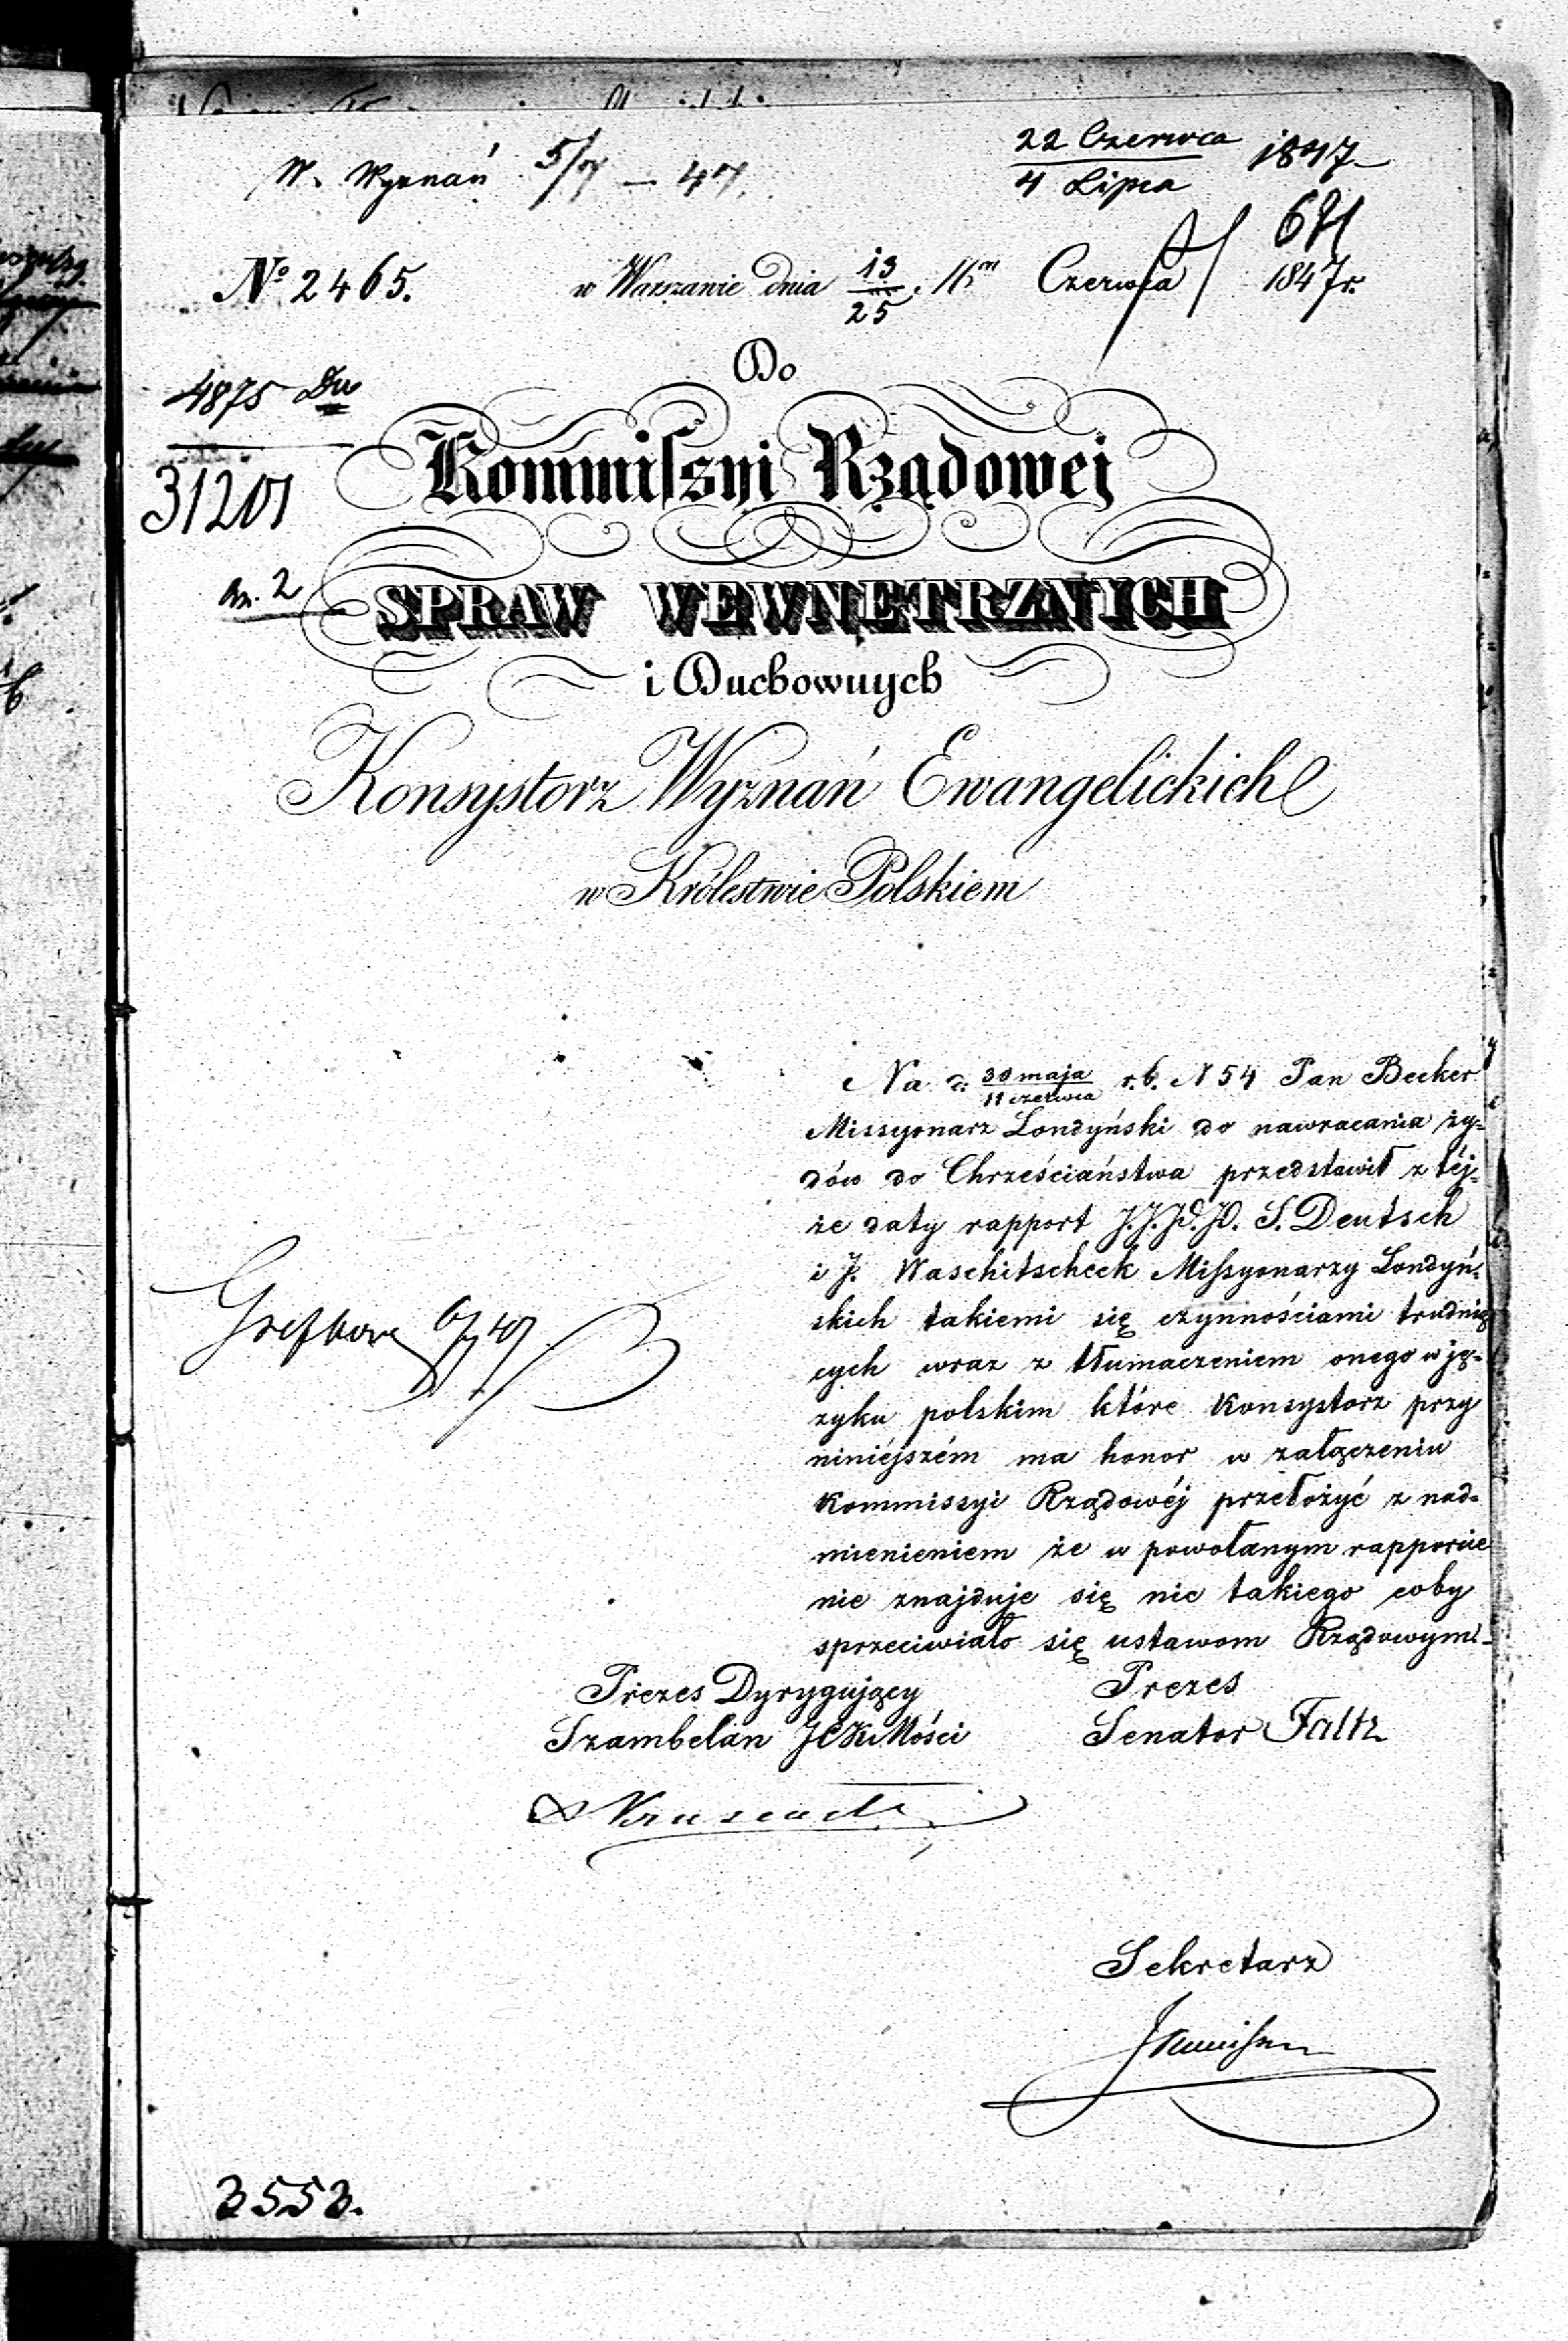 W. Wyznań 5/7 — 47.
22 Czerwca
4 Lipca
1847
681
No 2465.
w Warszawie dnia 13/25 Czerwca 1847 r.
Do
4875
31201
Kommissyi Rządowej
SPRAW WEWNĘTRZNYCH
i Duchownych
Konsystorz Wyznań Ewangelickich
w Królestwie Polskiem
Na d. 30 maja / 11 czerwca r. b. N 54 Pan Becker
Missyonarz Londyński do nawracania ży-
dów do Chrześciaństwa przedstawił z téj-
że daty rapport J.J.P.P. S. Deutsch
i J. Waschitscheck Missyonarzy Londyń-
skich takiemi się czynnościami trudnią
cych wraz z tłumaczeniem onego w ję-
zyku polskim które Konsystorz przy
niniéjszém ma honor w załączeniu
Kommissyi Rządowéj przełożyć z nad-
mienieniem że w powołanym rapporcie
nie znajduje się nic takiego coby
sprzeciwiało się ustawom Rządowym.
Prezes Dyrygujący
Szambelan JCKMości
Prezes
Senator Faltz
Sekretarz
3553.